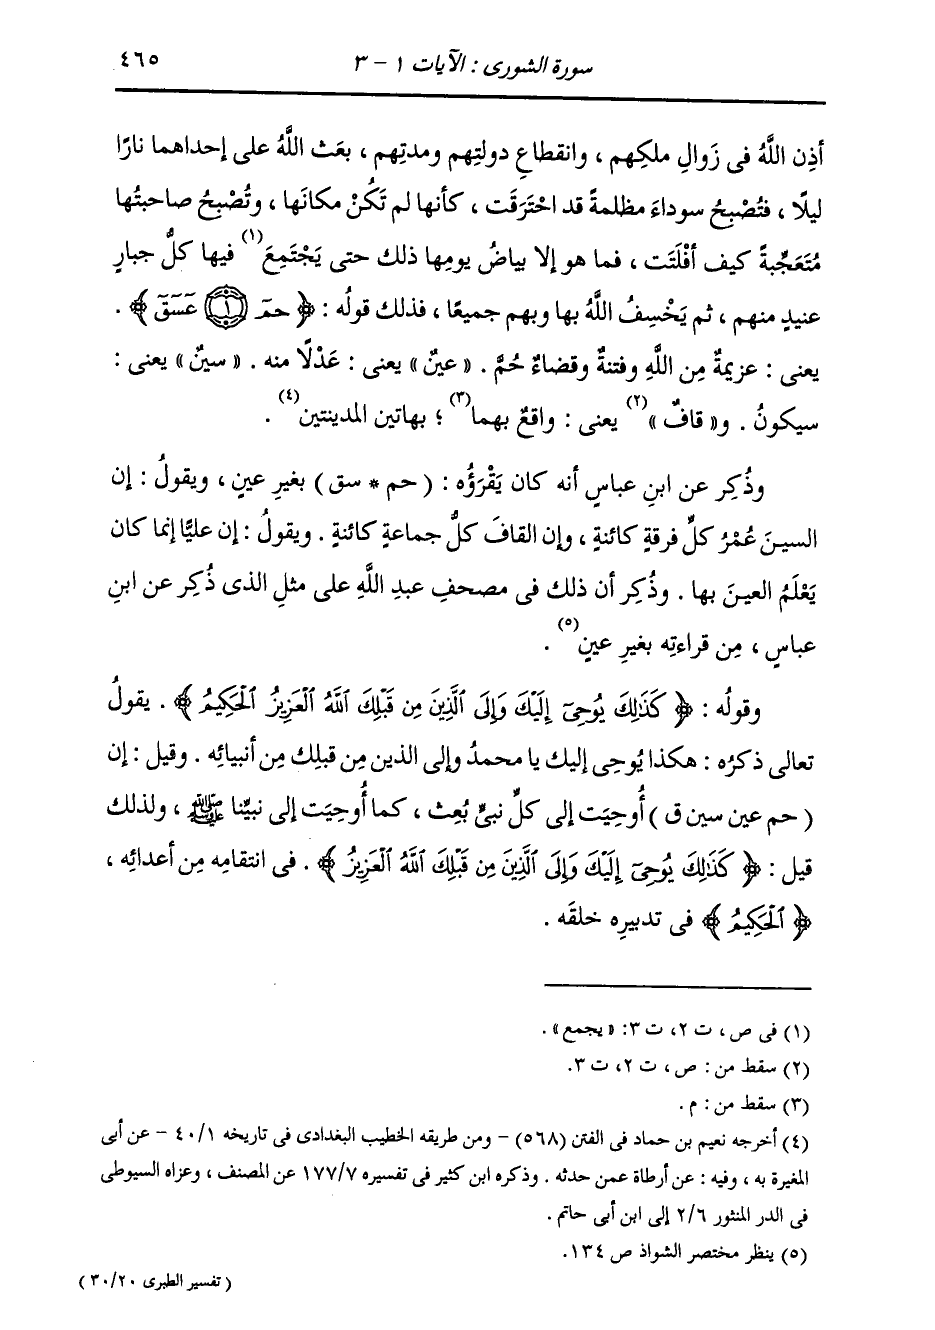 سورة الشورى : الآيات ١ - ٣ ٤٦٥
أذِن اللَّهُ فى زَوالِ ملكِهم ، وانقطاعِ دولتِهم ومدتِهم ، بعَث اللَّهُ على إحداهما نارًا
ليلًا ، فتُصْبِحُ سوداءَ مظلمةً قد احْتَرَقَت ، كأنها لم تَكُنْ مكانَها ، وتُصْبِحُ صاحبتُها
مُتَعَجِّبةً كيف أفْلَتَت ، فما هو إلا بياضُ يومِها ذلك حتى يَجْتَمِعَ(١) فيها كلُّ جبارٍ
عنيدٍ منهم ، ثم يَخْسِفُ اللَّهُ بها وبهم جميعًا ، فذلك قولُه : ﴿ حمٓ ۝١ عٓسٓقٓ ﴾ .
يعنى : عزيمةٌ مِن اللَّهِ وفتنةٌ وقضاءٌ حُمَّ . « عينٌ » يعنى : عَدْلًا منه . « سينٌ » يعنى :
سيكونُ . و« قافٌ »(٢) يعنى : واقعٌ بهما(٣) ؛ بهاتين المدينتين(٤) .
وذُكِر عن ابنِ عباسٍ أنه كان يَقْرَؤُه : ( حم * سق ) بغيرِ عينٍ ، ويقولُ : إن
السينَ عُمْرُ كلِّ فرقةٍ كائنةٍ ، وإن القافَ كلُّ جماعةٍ كائنةٍ . ويقولُ : إن عليًّا إنما كان
يَعْلَمُ العينَ بها . وذُكِر أن ذلك فى مصحفِ عبدِ اللَّهِ على مثلِ الذى ذُكِر عن ابنِ
عباسٍ ، مِن قراءتِه بغيرِ عينٍ(٥) .
وقولُه : ﴿ كَذَٰلِكَ يُوحِىٓ إِلَيْكَ وَإِلَى ٱلَّذِينَ مِن قَبْلِكَ ٱللَّهُ ٱلْعَزِيزُ ٱلْحَكِيمُ ﴾ . يقولُ
تعالى ذكرُه : هكذا يُوحِى إليك يا محمدُ وإلى الذين مِن قبلِك مِن أنبيائِه . وقيل : إن
( حم عين سين ق ) أُوحِيَت إلى كلِّ نبىٍّ بُعِث ، كما أُوحِيَت إلى نبيِّنا ﷺ ، ولذلك
قيل : ﴿ كَذَٰلِكَ يُوحِىٓ إِلَيْكَ وَإِلَى ٱلَّذِينَ مِن قَبْلِكَ ٱللَّهُ ٱلْعَزِيزُ ﴾ . فى انتقامِه مِن أعدائِه ،
﴿ ٱلْحَكِيمُ ﴾ فى تدبيرِه خلقَه .
(١) فى ص، ت ٢، ت ٣: « يجمع » .
(٢) سقط من : ص، ت ٢، ت ٣.
(٣) سقط من : م .
(٤) أخرجه نعيم بن حماد فى الفتن (٥٦٨) - ومن طريقه الخطيب البغدادى فى تاريخه ٤٠/١ - عن أبى
المغيرة به ، وفيه : عن أرطاة عمن حدثه . وذكره ابن كثير فى تفسيره ١٧٧/٧ عن المصنف ، وعزاه السيوطى
فى الدر المنثور ٢/٦ إلى ابن أبى حاتم .
(٥) ينظر مختصر الشواذ ص ١٣٤.
( تفسير الطبرى ٣٠/٢٠ )